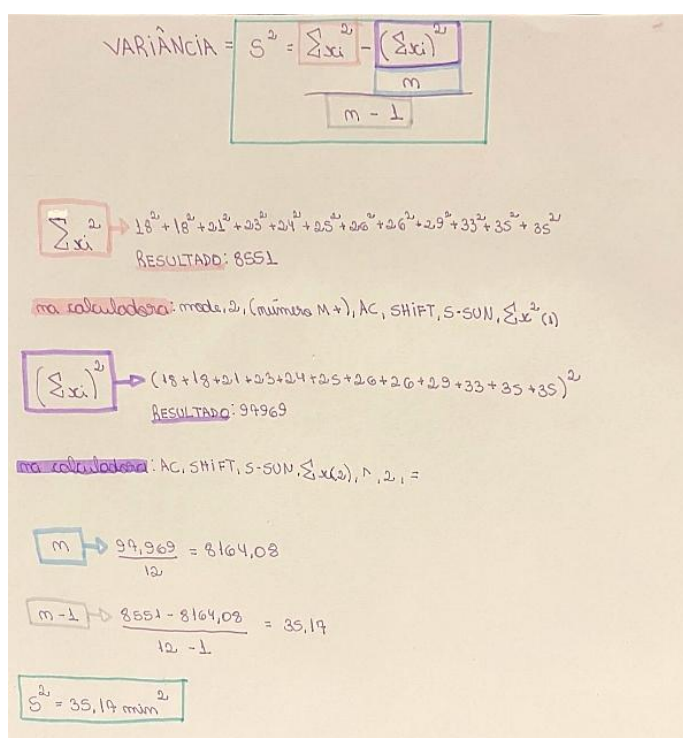 VARIÂNCIA = S² = Σxi² - (Σxi)²
n
n - 1
Σxi² → 18² + 18² + 21² + 23² + 24² + 25² + 26² + 26² + 29² + 33² + 35² + 35²
RESULTADO: 8551
na calculadora: mode, 2, (número M+), AC, SHIFT, S-SUN, Σx² (1)
(Σxi)² → (18+18+21+23+24+25+26+26+29+33+35+35)²
RESULTADO: 97969
na calculadora: AC, SHIFT, S-SUN, Σx(2), ^, 2, =
n → 97,969 = 8164,08
12
n-1 → 8551 - 8164,08 = 35,17
12 - 1
S² = 35,17 min²